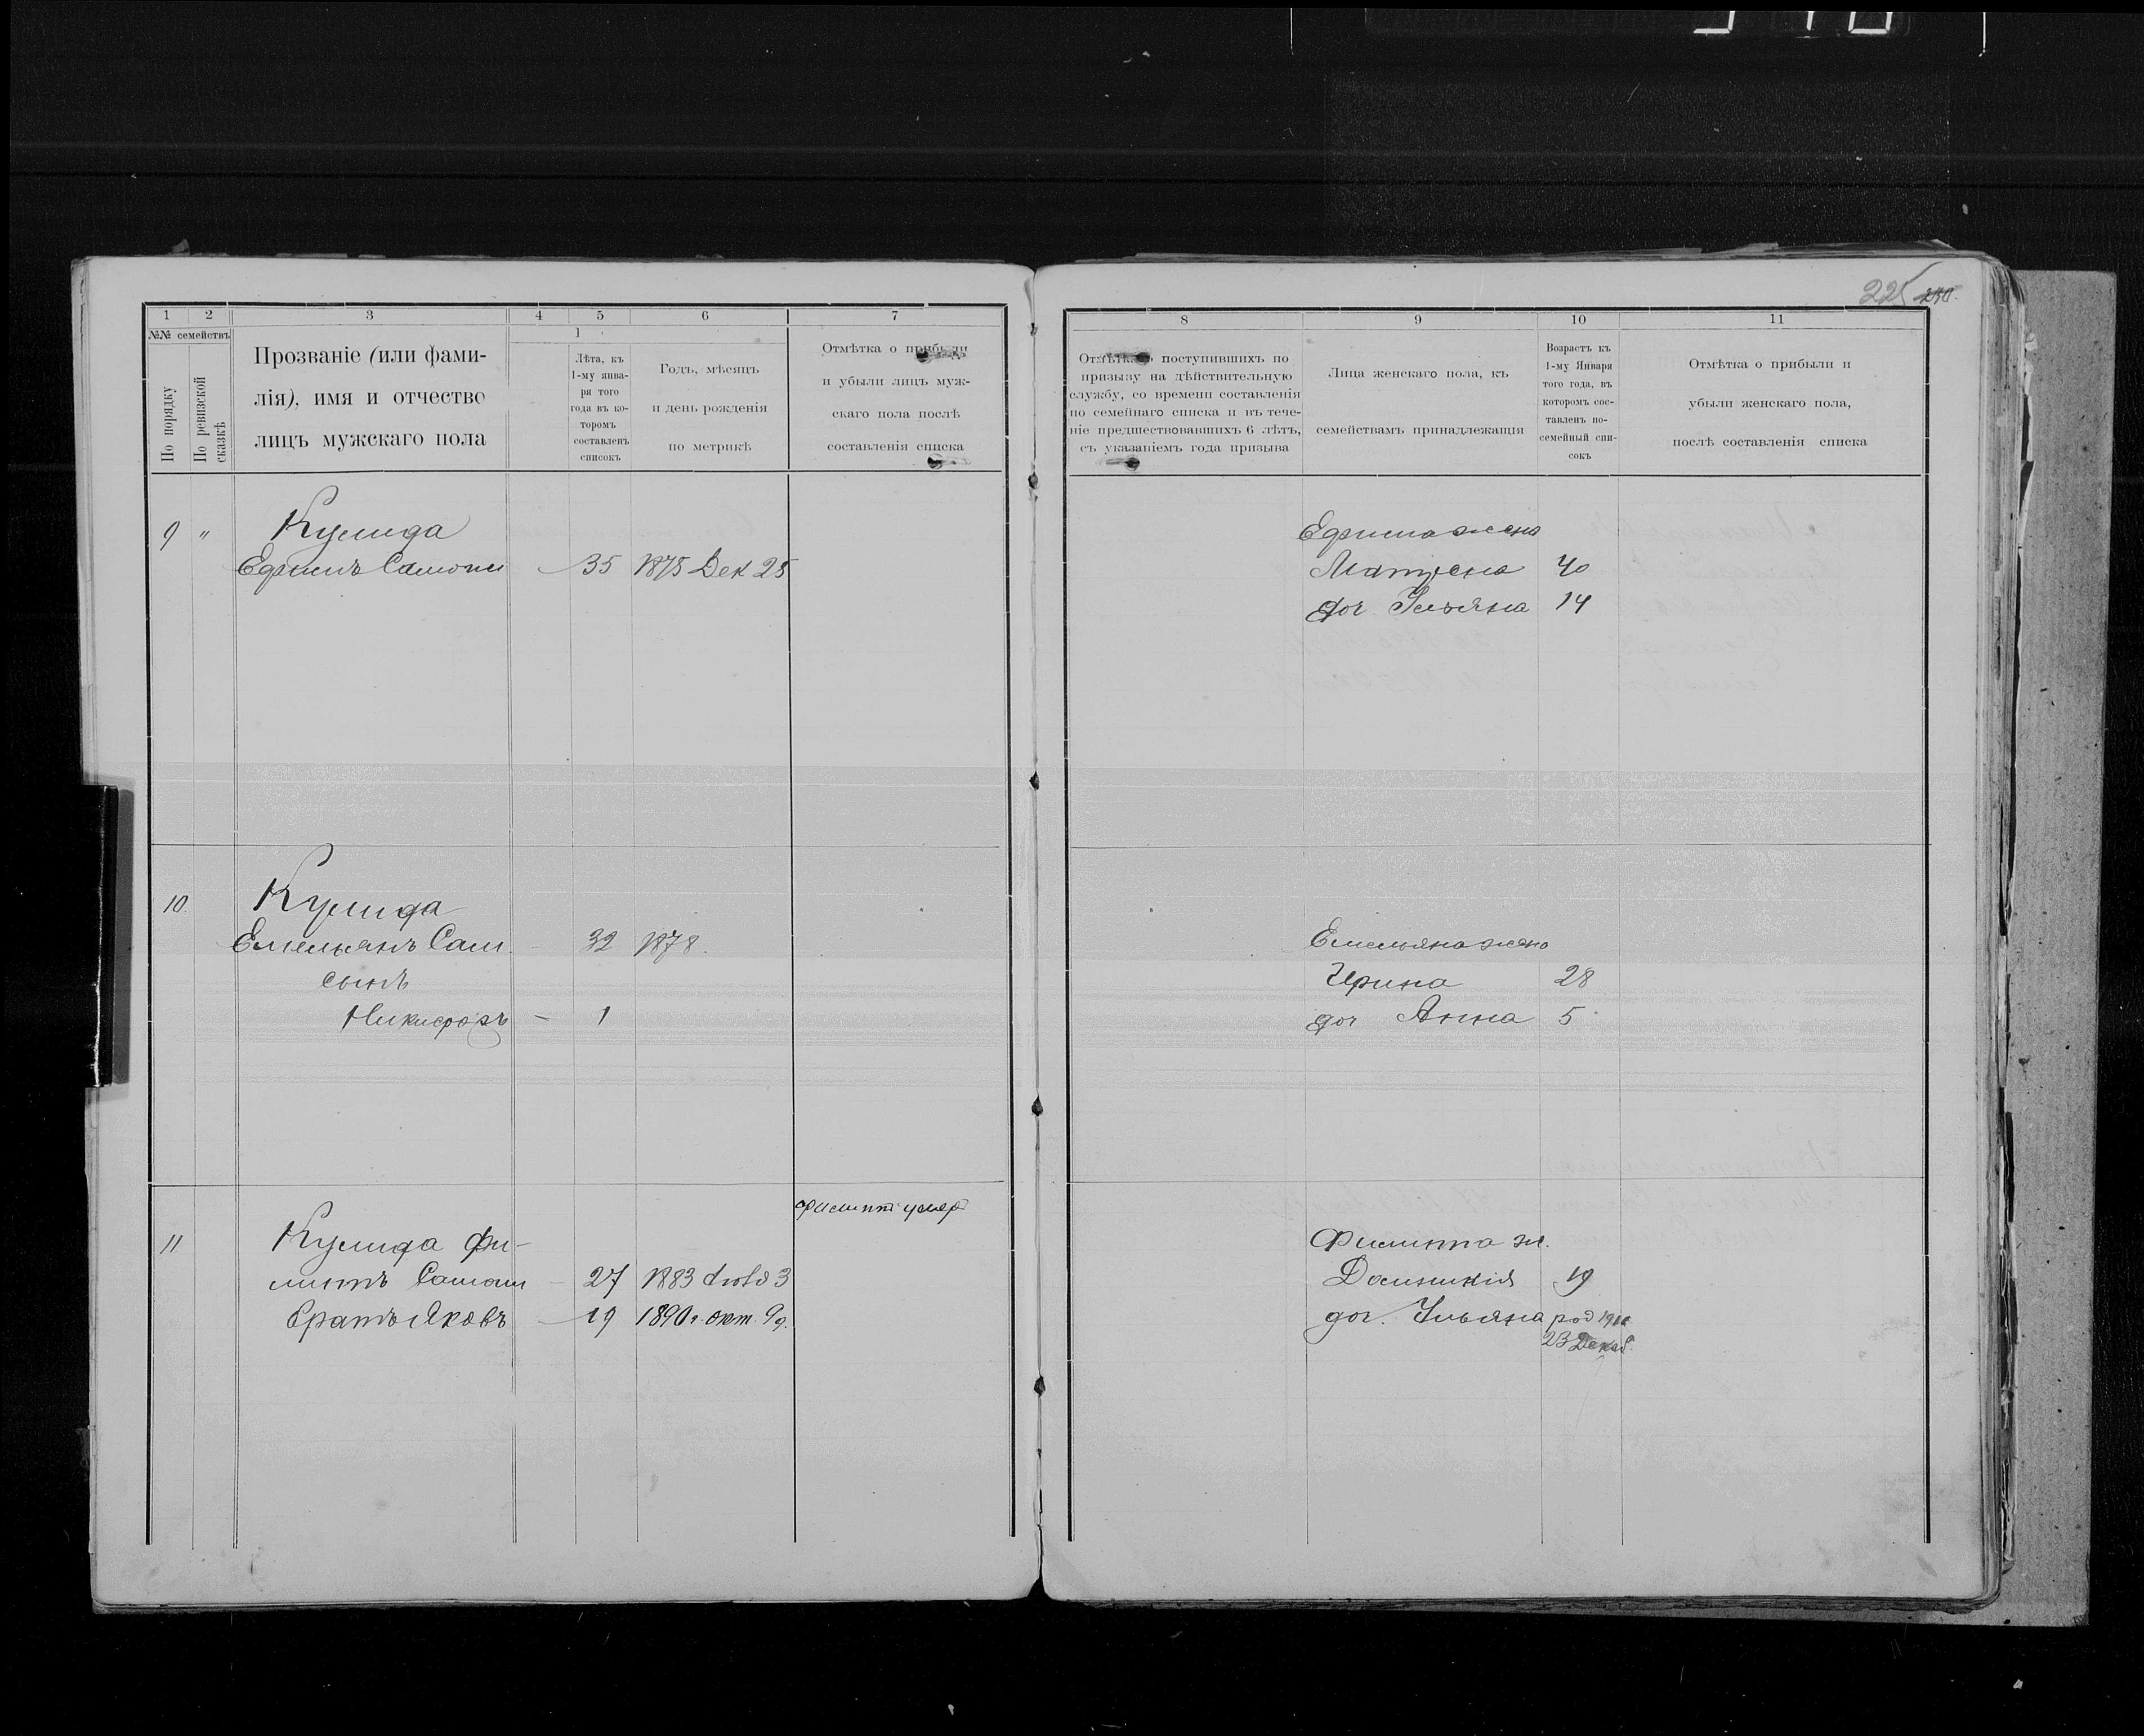 225 240.
1 2 3 4 5 6 7
№№ семействъ
По порядку
По ревизской сказкѣ
Прозваніе (или фами-
лія), имя и отчество
лицъ мужскаго пола
1
Лѣта, къ
1-му янва-
ря того
года въ ко-
торомъ
составленъ
списокъ
Годъ, мѣсяцъ
и день рожденія
по метрикѣ
Отмѣтка о прибыли
и убыли лицъ муж-
скаго пола послѣ
составленія списка
8 9 10 11
Отмѣтка о поступившихъ по
призыву на дѣйствительную
службу, со времени составленія
по семейнаго списка и въ тече-
ніе предшествовавшихъ 6 лѣтъ,
съ указаніемъ года призыва
Лица женскаго пола, къ
семействамъ принадлежащія
Возрастъ къ
1-му Января
того года, въ
которомъ сос-
тавленъ по-
семейный спи-
сокъ
Отмѣтка о прибыли и
убыли женскаго пола,
послѣ составленія списка
9 " Кулида
Ефимъ Самойл 35 1875 Дек 25
Ефима жена
Матрена 40
доч Ульяна 14
10. Кулида
Емельянъ Сам. 32 1878.
сынъ
Никифоръ 1
Емельяна жена
Ирина 28
доч Анна 5
филиппъ умер
11 Кулида Фи-
липпъ Самойл 27 1883 3
братъ Яковъ 19 1890 г. окт. 9 д.
Филиппа ж.
19
доч. Ульяна род 1910
23 Декаб.